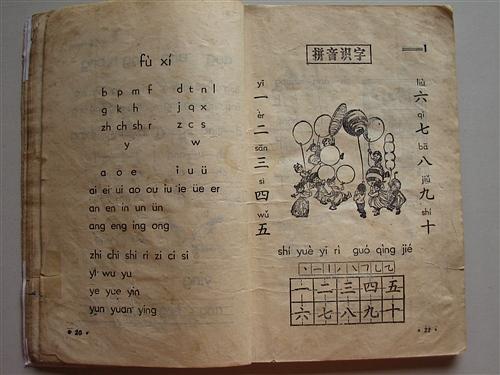 fù xí
b p m f d t n l
g k h j q x
zh ch sh r z c s
y w
a o e i u ü
ai ei ui ao ou iu ie üe er
an en in un ün
ang eng ing ong
zhi chi shi ri zi ci si
yi wu yu
ye yue yin
yun yuan ying
20
拼音识字
1
yī
一
èr
二
sān
三
sì
四
wǔ
五
liù
六
qī
七
bā
八
jiǔ
九
shí
十
shí yuè yī rì guó qìng jié
一 二 三 四 五
六 七 八 九 十